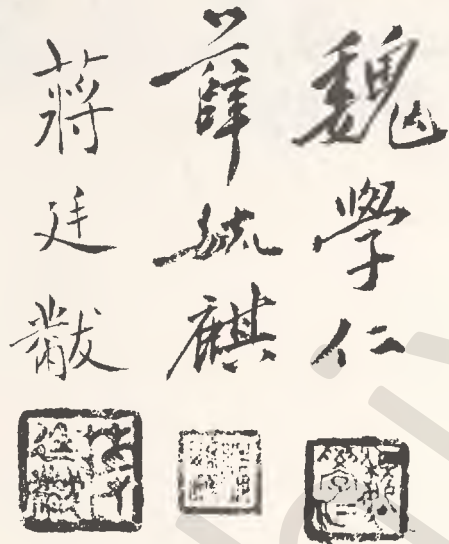 魏學仁
薛毓麒
蔣廷黻